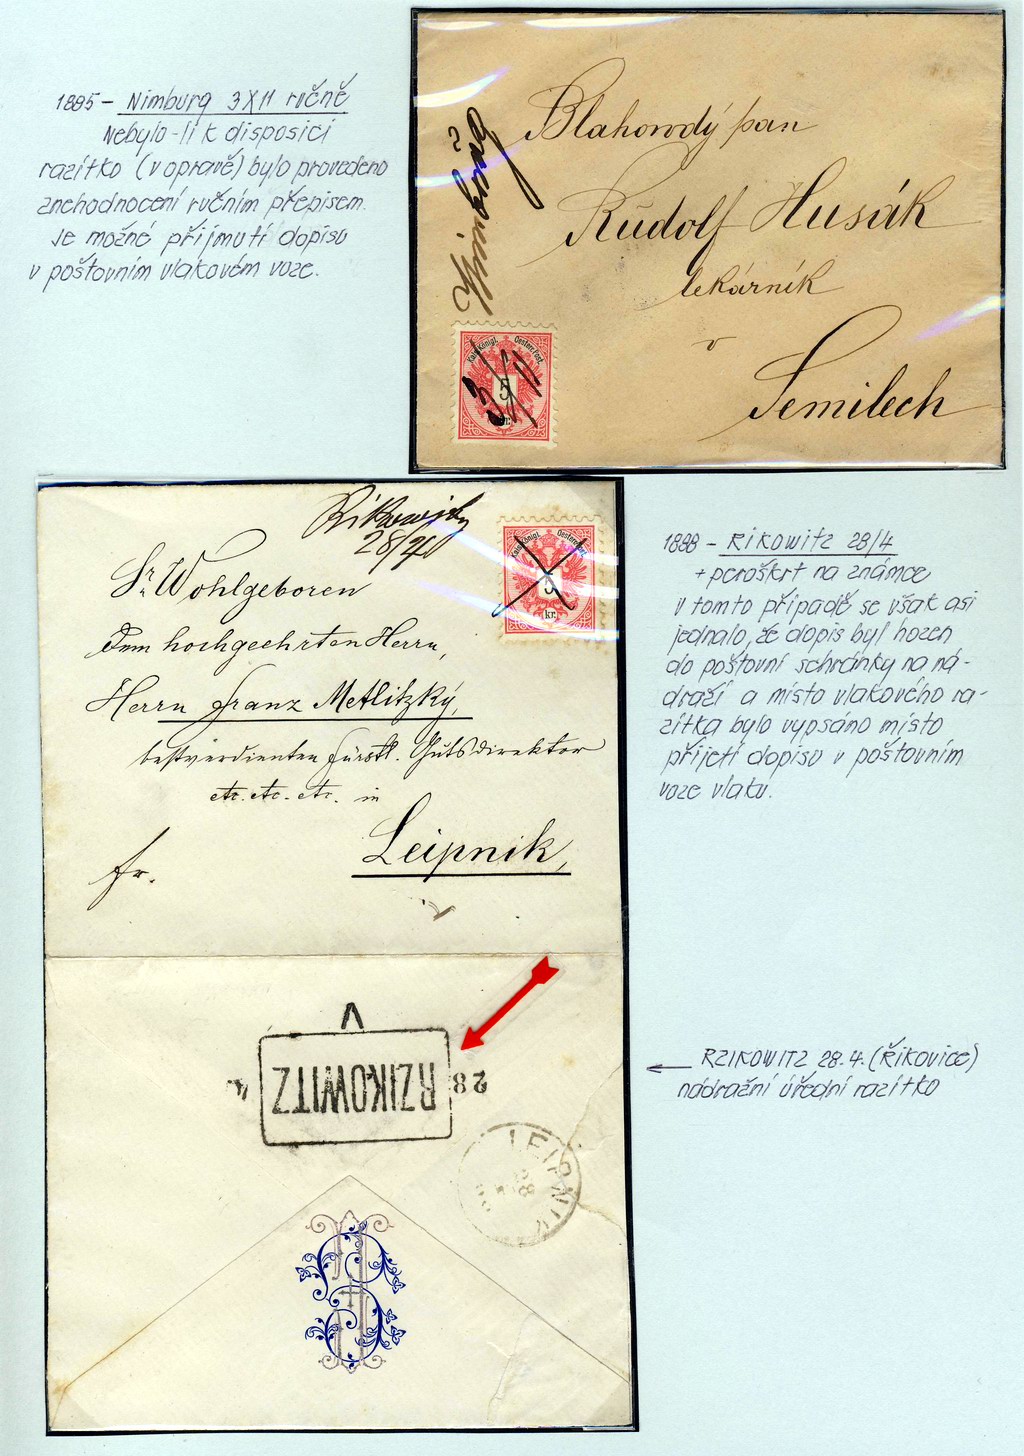 1885 - Nimburg 3 X 11 ručně
Nebylo-li k disposici
razítko (v opravě) bylo provedeno
znehodnocení ručním přepisem.
Je možné přijmutí dopisu
v poštovním vlakovém voze.
Blahorodý pan
Rudolf Husák
lekárník
v
Semilech
Nimburg
Kais. Königl. Oesterr. Post.
5
kr.
3/11
28/4
Kais. Königl. Oesterr. Post.
5
kr.
Sr. Wohlgeboren
Dem hochgeehrten Herrn,
Herrn Franz Metlitzký,
bestverdienten fürstl. Gutsdirektor
etc. etc. etc. in
Leipnik,
fr.
1888 - RIKOWITZ 28/4
+ peroškrt na známce
v tomto případě se však asi
jednalo, že dopis byl hozen
do poštovní schránky na ná-
draží a místo vlakového ra-
zítka bylo vypsáno místo
přijetí dopisu v poštovním
voze vlaku.
RZIKOWITZ
28
4
V
LEIPNIK
28
RZIKOWITZ 28.4. (Řikovice)
nádražní úřední razítko